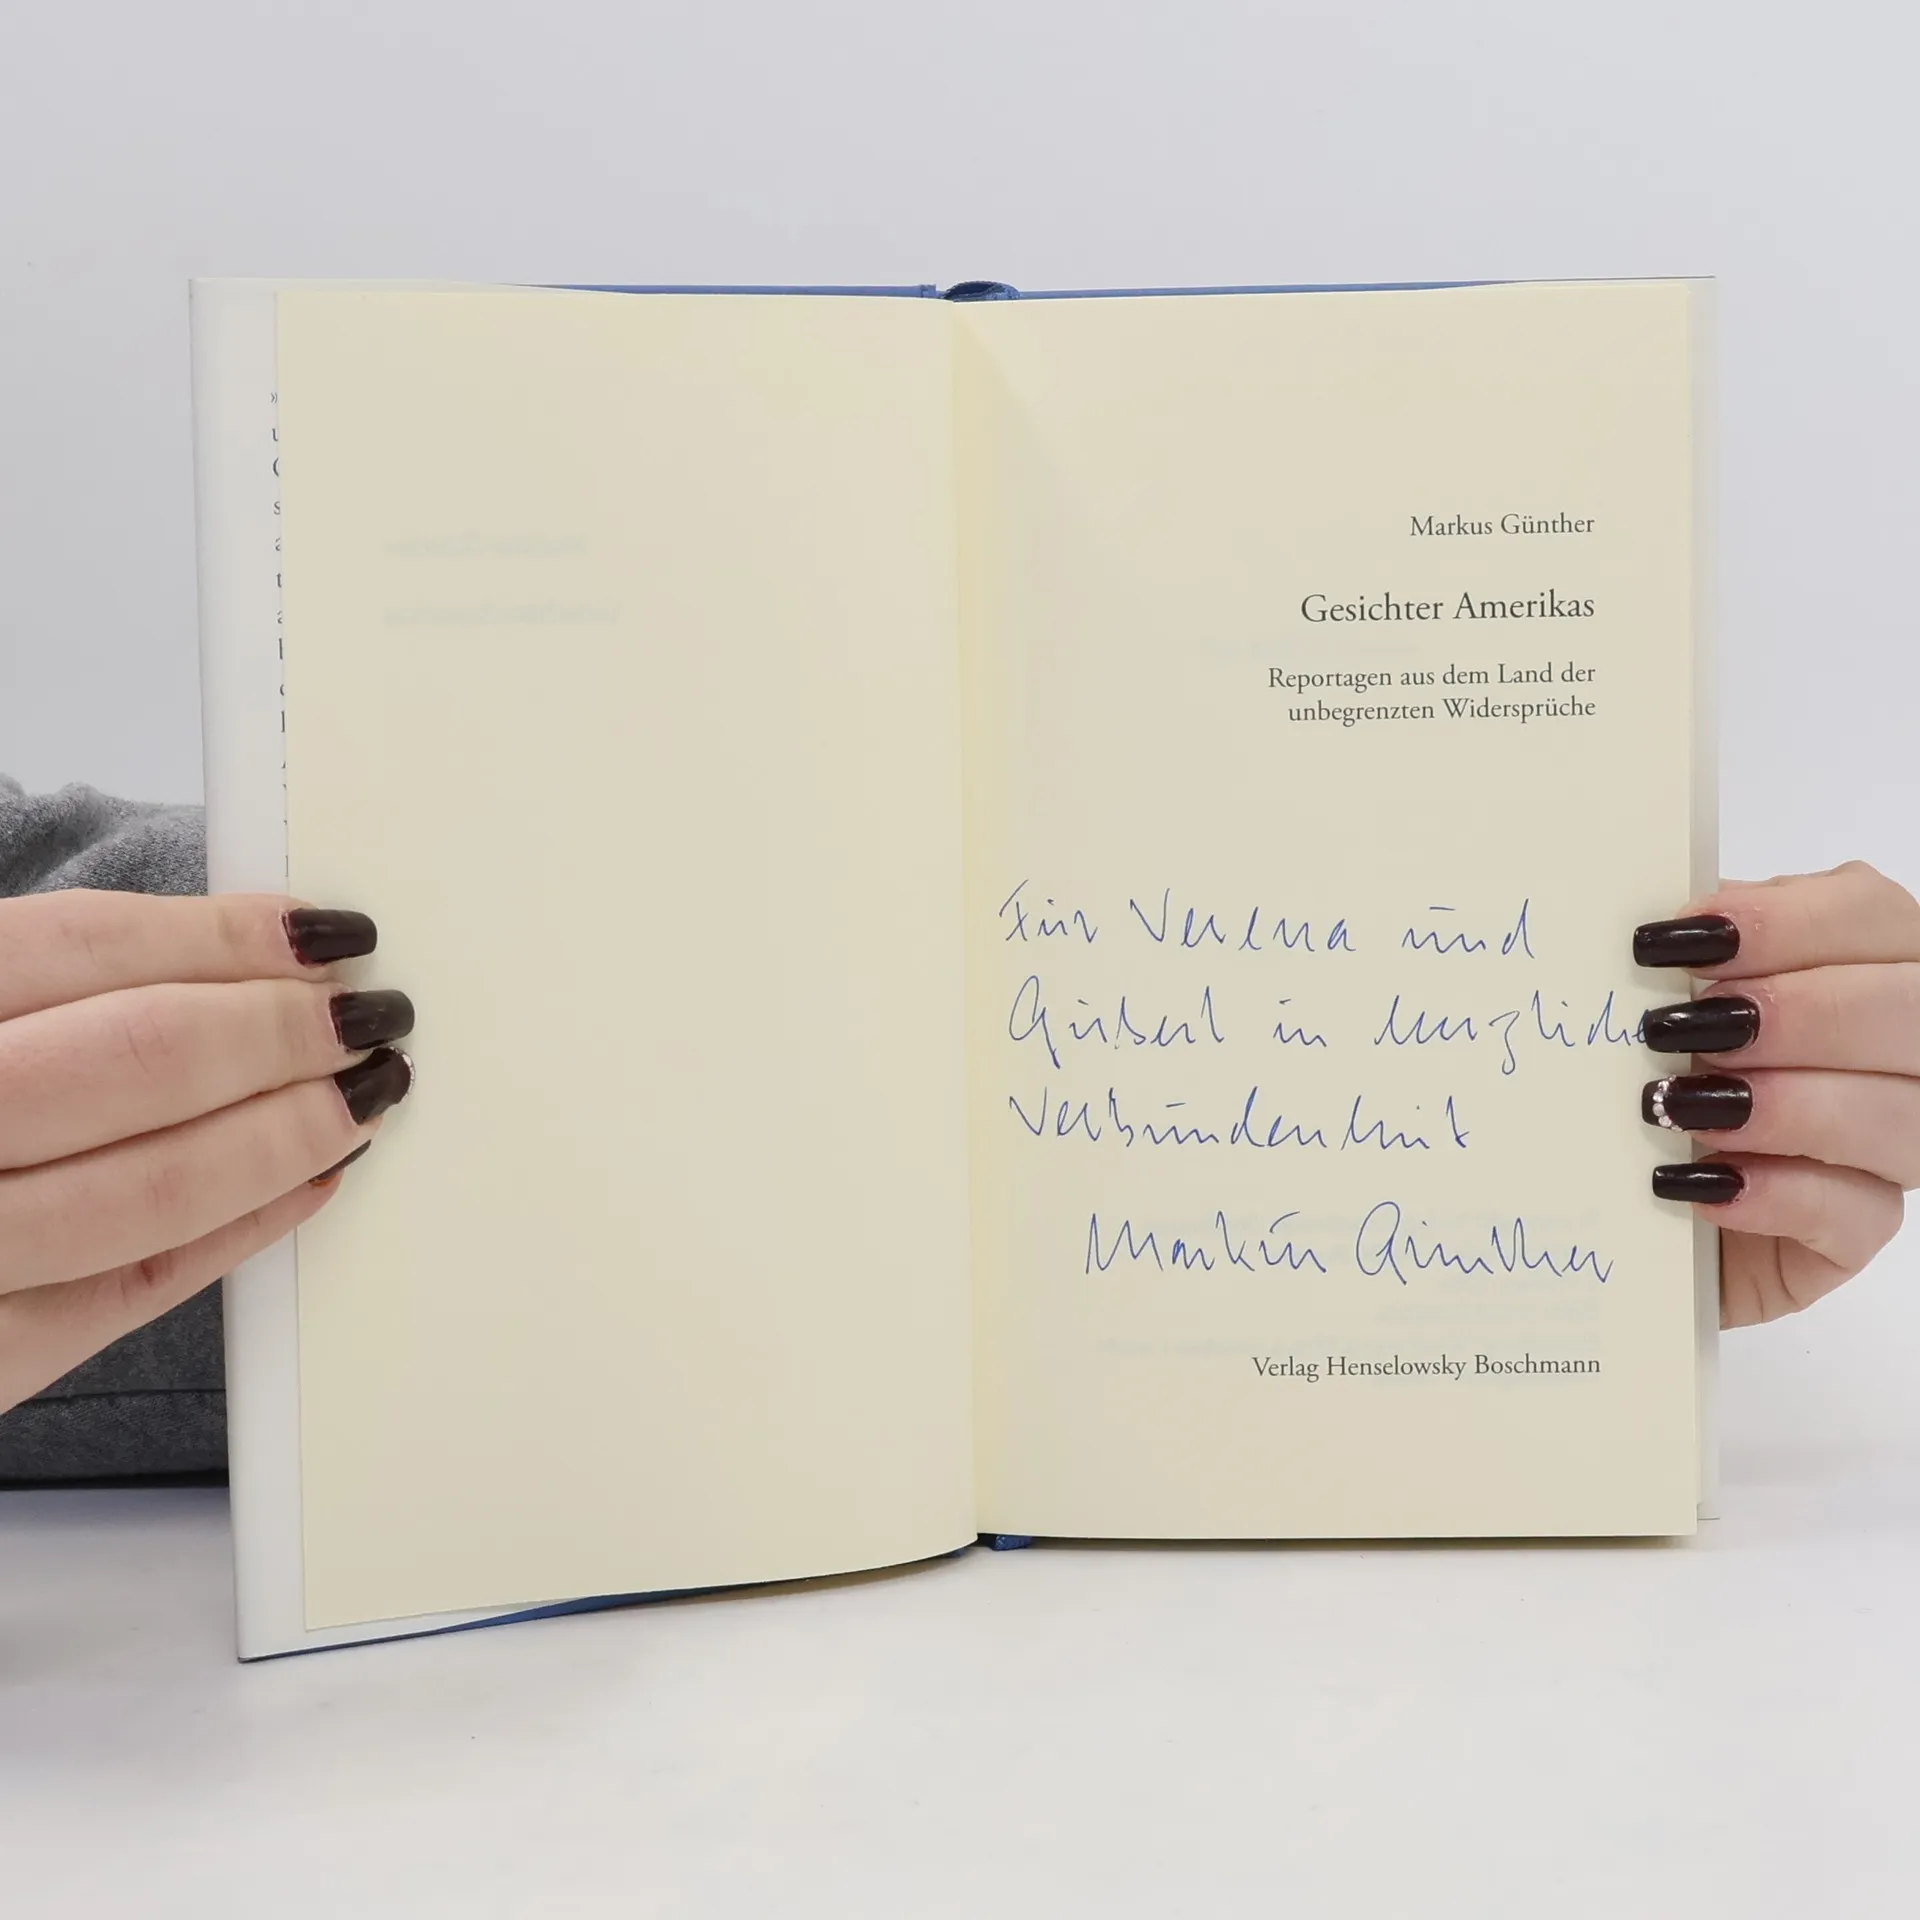 Markus Günther
Gesichter Amerikas
Reportagen aus dem Land der
unbegrenzten Widersprüche
Für Verena und
in herzliche
Verbundenheit
Markus Günther
Verlag Henselowsky Boschmann